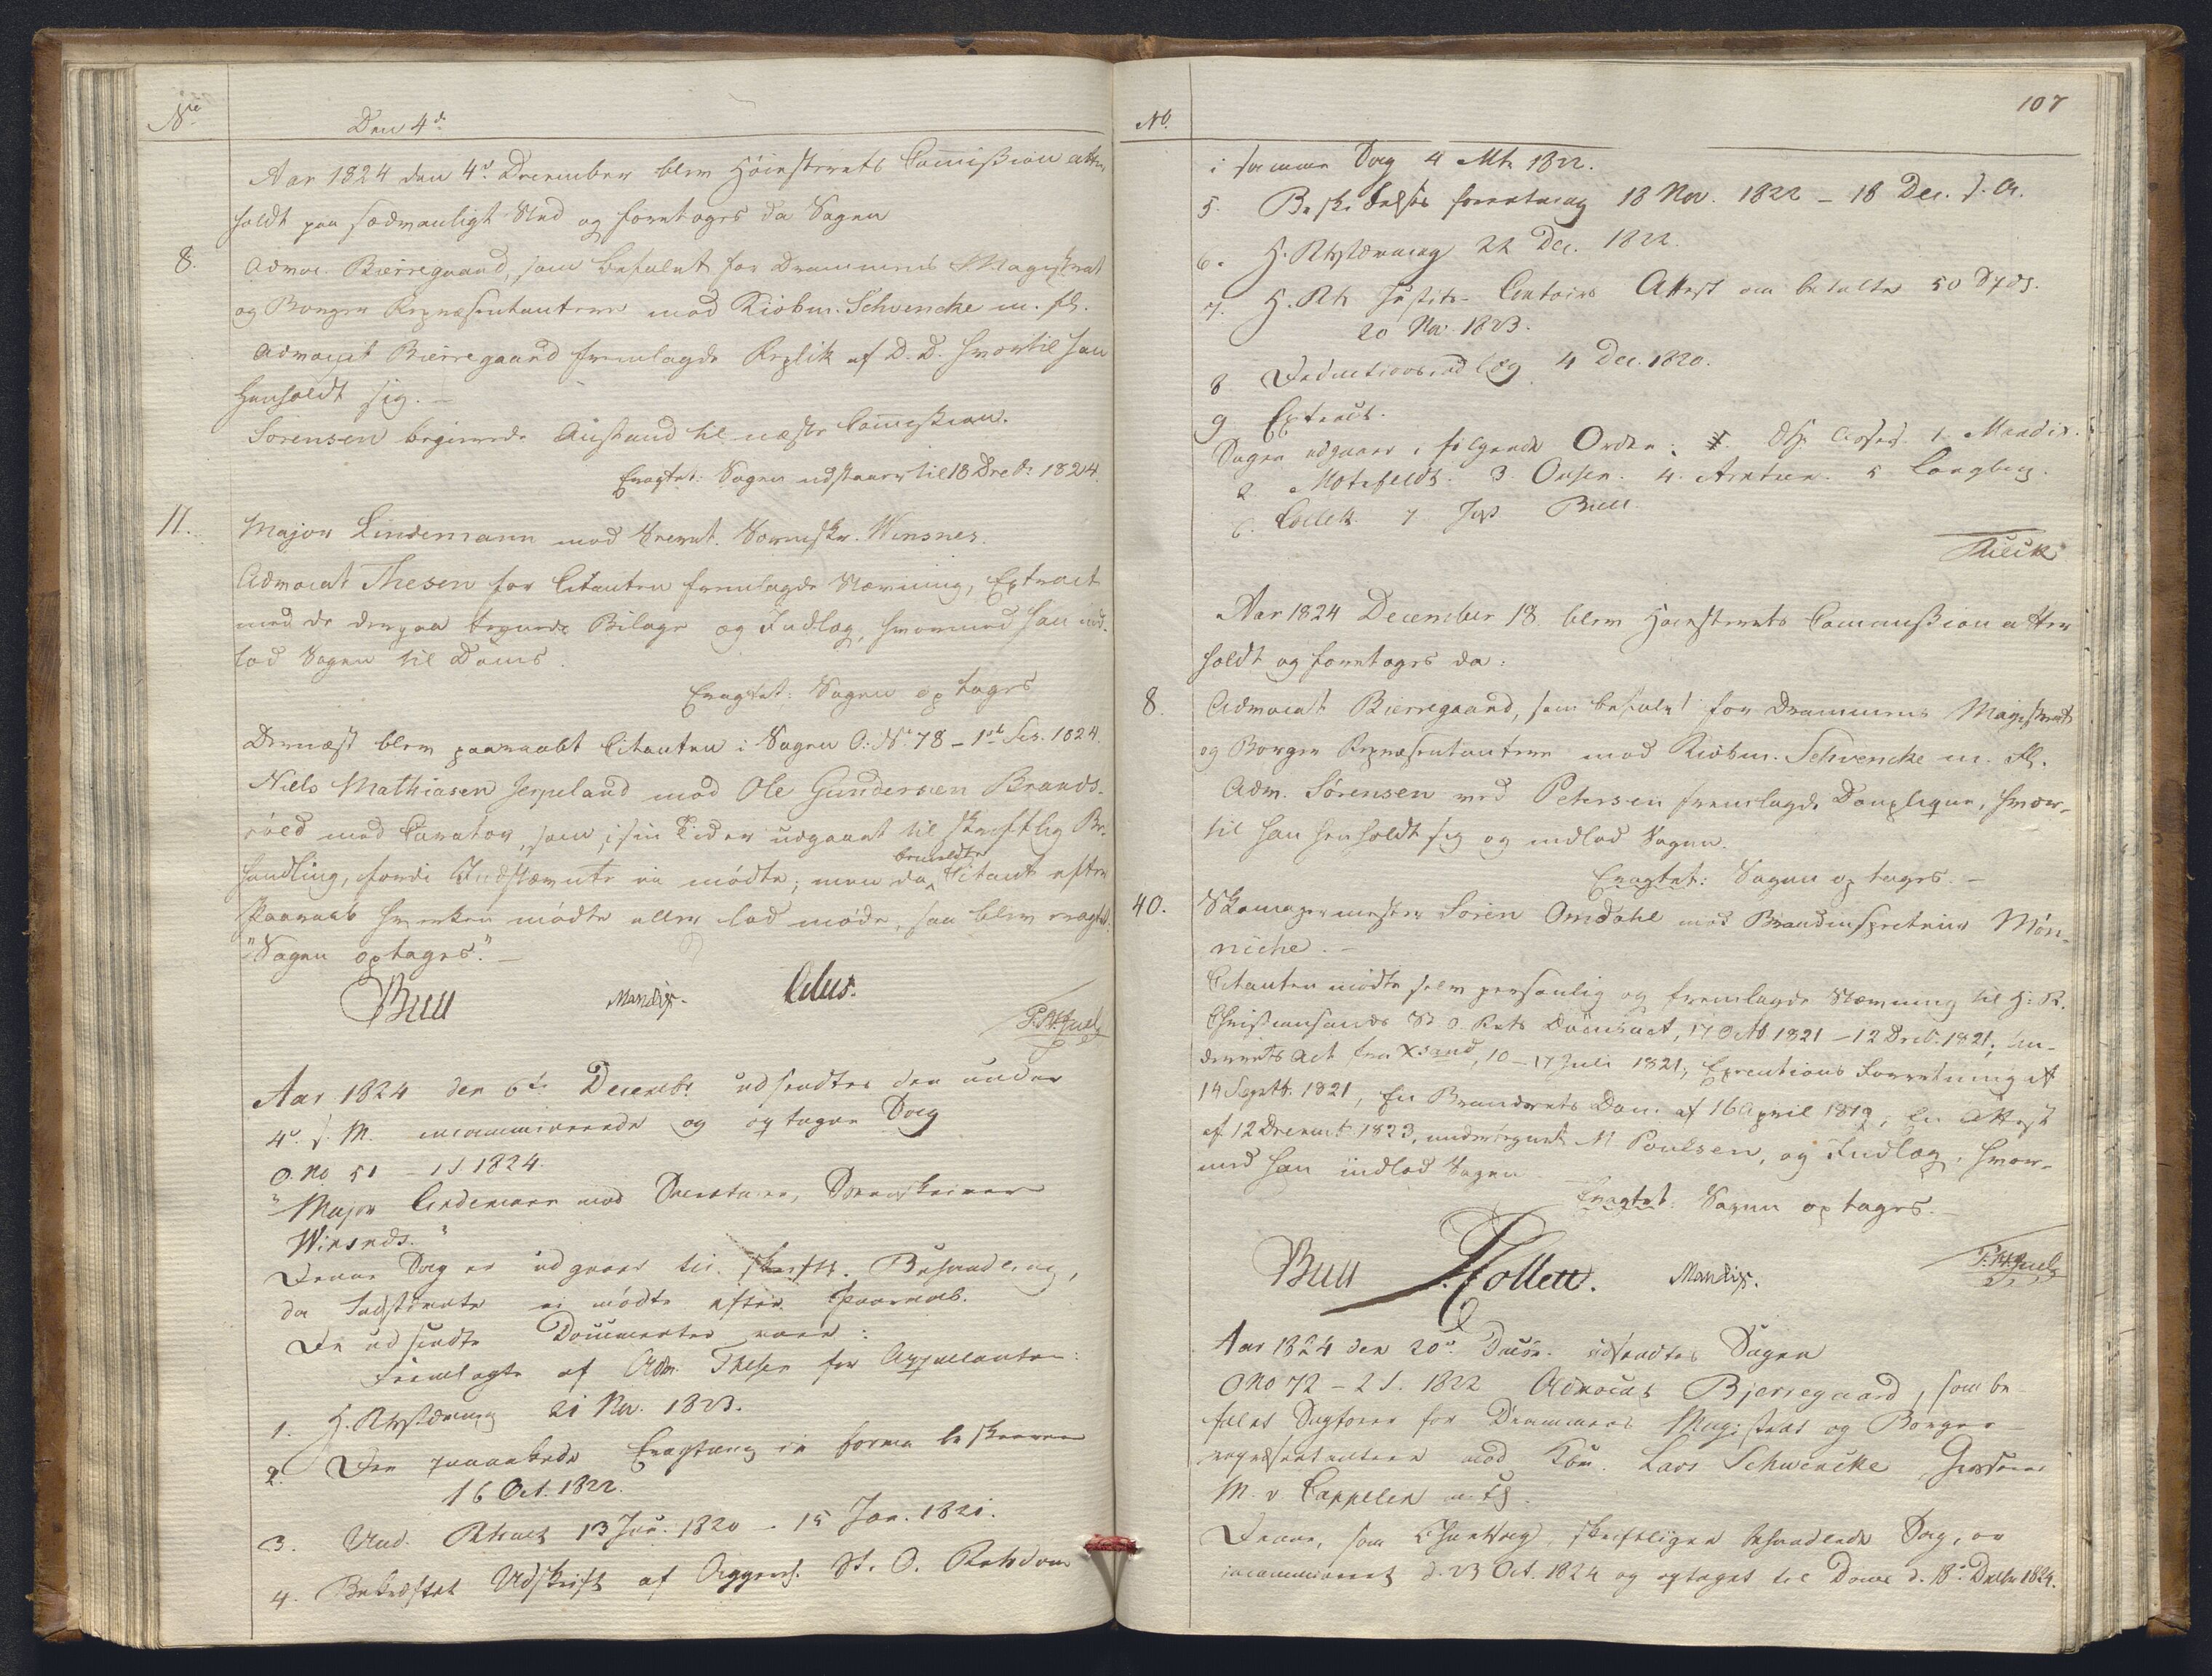 No
Den 4de
Aar 1824 den 4de December blev Höiesterets Commission atter
holdt paa sædvanligt Sted og foretoges da Sagen
8. Advoc. Bierregaard, som befalet for Drammens Magistrat
og Borger Repræsentantere mod Kiöbm. Schvencke m. fl.
Advocat Bierregaard fremlagde Replik af D. D. hvortil han
henholdt sig. —
Sörensen begierede Anstand til næste Commission.
Eragtet: Sagen udstaaer til 18 Decbr 1824.
11. Major Lindemann mod Sorenskr. Winsnes.
Advocat Thesen for Citanten fremlagde Stævning, Extract
med de derpaa tegnede Bilage og Indlæg, hvormed han ind-
lod Sagen til Doms.
Eragtet: Sagen optages
Dernæst blev paaraabt Citanten i Sagen O: No 78 – 1ste Ses. 1824.
Niels Mathiasen Jerpeland mod Ole Gundersen Brands-
röed med Curator, som i sin Tid er udgaaet til skriftlig Be-
handling, fordi Indstævnte ei mödte; men da bemeldte Citant efter
Paaraab hverken mödte eller lod möde, saa blev eragtet:
"Sagen optages." —
Bull Mandix. Aars.
P. W. Juel
Aar 1824 den 6te Decembr udsendtes den under
4de d. M. incaminerede og optagne Sag
O. No 51 – 1 S 1824.
"Major Lindemann mod Sorenskriver
Winsnes."
Denne Sag er udgaaet til skriftl. Behandling,
da Indstævnte ei mödte efter Paaraab.
De udsendte Documenter vare:
Fremlagte af Adv. Thesen for Appellanten:
1. H. Rtsstævning 21 Nov. 1823.
2. Den paaankede Eragtning in forma beskreven
16 Oct. 1822.
3. Und. Rtsact 13 Jun. 1820 – 15 Jan. 1821.
4. Bekræftet Udskrift af Aggersh. St. O. Rets dom
No. 107
i samme Sag 4 Mts 1822.
5. Beskikkelses forretning 18 Nov. 1822 – 18 Dec. s. A.
6. H. Rtsstævning 22 Dec. 1822.
7. H. Rts Justits-Contoirs Attest om betalte 50 Spds.
20 Nov. 1823.
8 Deductionsindlæg 4 Dec. 1820.
9 Extract.
Sagen udgaaer i følgende Orden: 1. Mandix.
2 Motzfeldt. 3. Omsen. 4. Arntzen. 5 Langberg.
6. Collett. 7. Just. Bull
Aar 1824 December 18. blev Höiesterets Commission atter
holdt og foretoges da:
8. Advocat Bierregaard, som befalet for Drammens Magistrat
og Borger Repræsentantere mod Kiöbm. Schvencke m. fl.
Adv. Sörensen ved Petersen fremlagde Douplique, hvor-
til han henholdt sig og indlod Sagen.
Eragtet: Sagen optages. —
40. Skomagermester Sören Omdahl mod Brandinspecteur Mön-
niche. —
Citanten mödte selv personlig og fremlagde Stævning til H: R.
Christiansands St. O. Rets Domsact, 17 Octb 1821 – 12 Decb. 1821; Un-
derrets Act fra Xsand, 10 – 17 Juli 1821; Executions Forretning af
14 Septb. 1821, En Brandrets Dom af 16 April 1819; En Attest
af 12 Decemb. 1823, undertegnet M Poulsen, og Indlæg, hvor-
med han indlod Sagen
Eragtet: Sagen optages. —
Bull P. Collett. Mandix.
P. W. Juel
Aar 1824 den 20de Decbr. udsendtes Sagen
O No 72 – 2 S. 1822 Advocat Bjerregaard, som be-
falet Sagförer for Drammens Magistrat og Borger-
repræsentantere mod Kbm. Lars Schwencke,
M. v. Cappelen m. fl.
Denne, som skriftligen behandlede Sag, er
incamineret d. 23 Oct. 1824 og optaget til Doms d. 18de Decbr 1824.